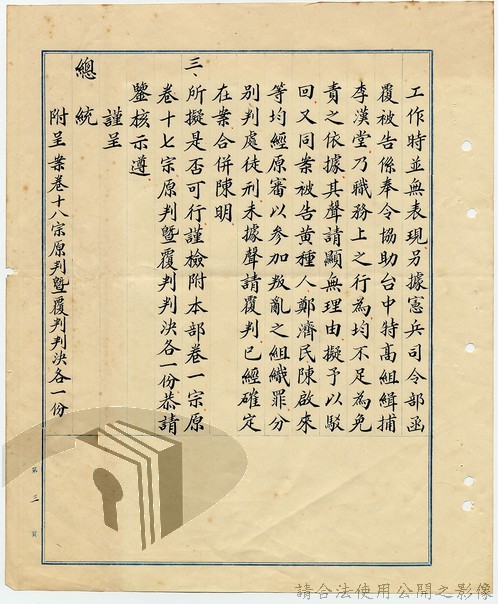 工作時並無表現另據憲兵司令部函
覆被告係奉令協助台中特高組緝捕
李漢堂乃職務上之行為均不足為免
責之依據其聲請顯無理由擬予以駁
回又同案被告黃種人鄭濟民陳啟來
等均經原審以參加叛亂之組織罪分
別判處徒刑未據聲請覆判已經確定
在案合併陳明
三、所擬是否可行謹檢附本部卷一宗原
卷十七宗原判暨覆判判決各一份恭請
鑒核示遵
謹呈
總統
附呈案卷十八宗原判暨覆判判決各一份
第三頁
請合法使用公開之影像